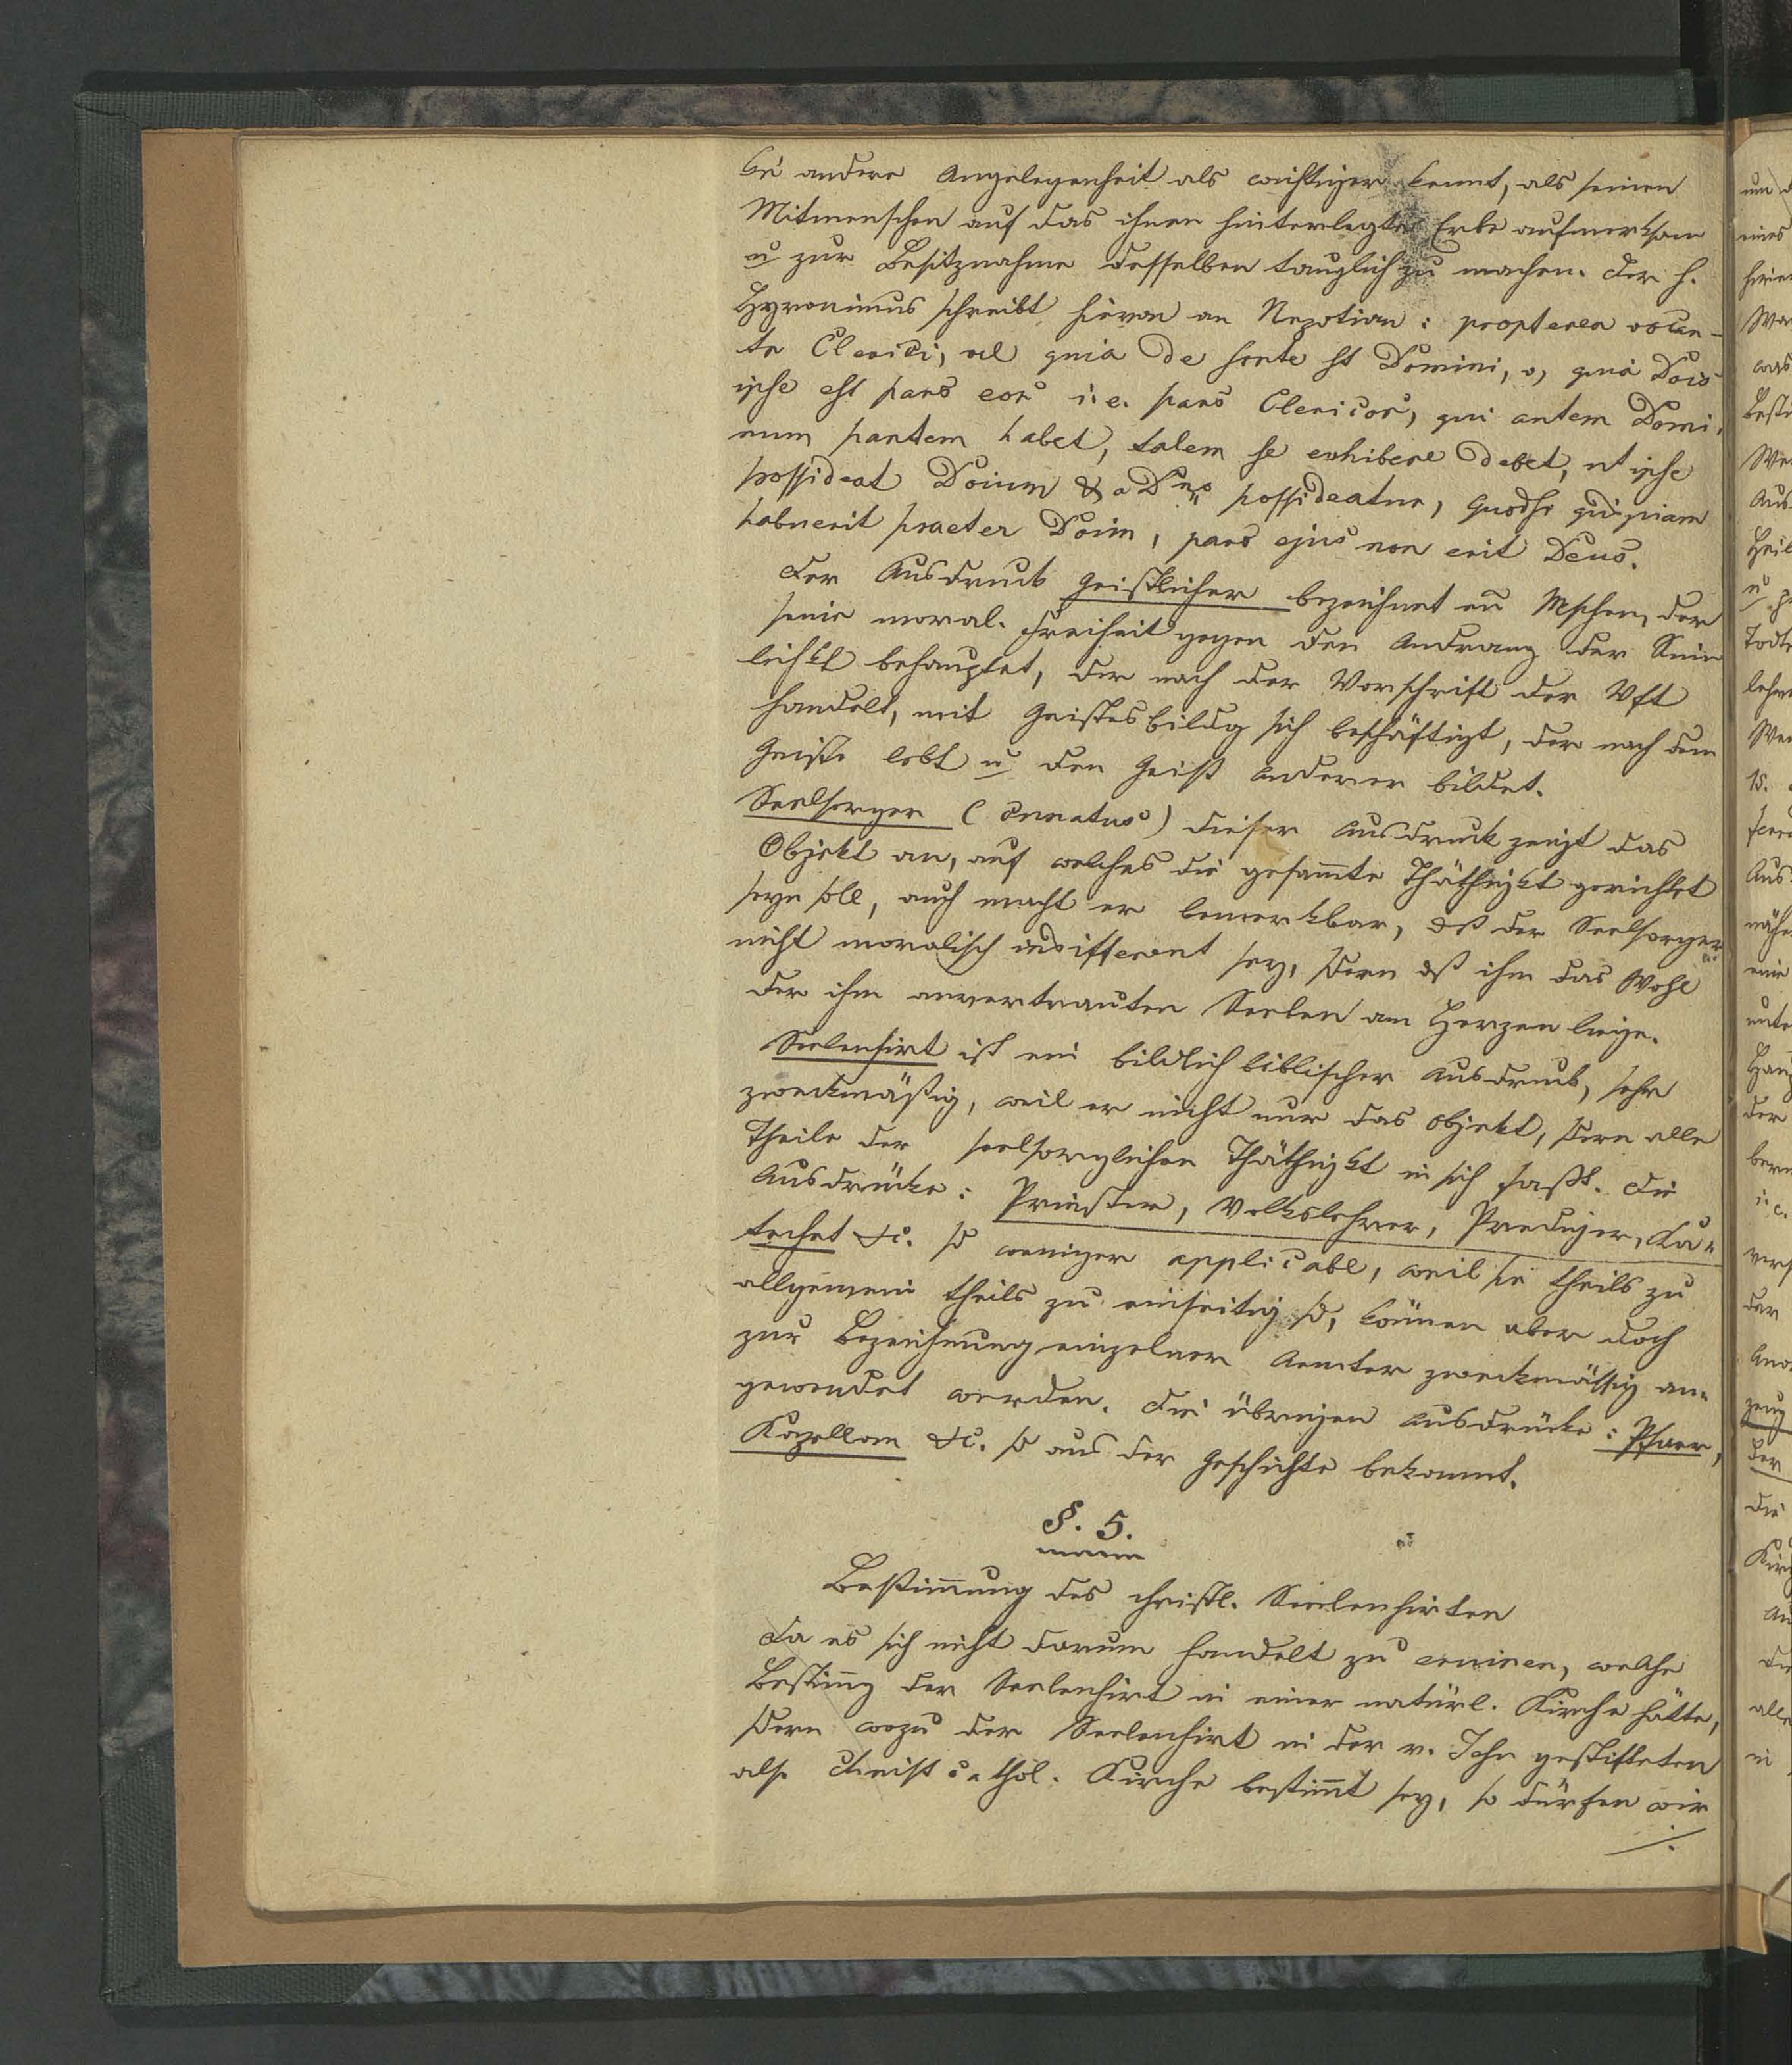 kei andere Angelegenheit als wichtiger kennt, als seinen
Mitmenschen auf das ihnen hinterlegte Erbe aufmerksam
u zur Besitznahme desselben tauglich zu machen. Der h.
Hyronimus schreibt hievon an Nepotian: propterea vocan-
tr Clerici, vel quia de sorte st Domini, v, quia Dois
ipse est pars eor i. e. pars Clericor, qui autem Domi-
num partem habet, talem se exhibere debet, ut ipse
possideat Doium & a Dno possideatur, quodsi quispiam
habuerit praeter Doim, pars ejus non erit Deus.
Der Ausdruck Geistlicher bezeichnet ein Mschen, der
seine moral. Freiheit gegen den Andrang der Sinn
lichkt behauptet, der nach der Vorschrift der Vft
handelt, mit Geistesbildg sich beschäftigt, der nach dem
Geiste lebt u den Geist anderer bildet.
Seelsorger (Curatus) dieser Ausdruck zeigt das
Objekt an, auf welches die gesam̄te Thäthigkt gerichtet
seyn soll, auch macht er bemerkbar, dß der Seelsorger
nicht moralisch indifferent sey, sdern dß ihm das Wohl
der ihm anvertrauten Seelen am Herzen liege.
Seelenhirt ist ein bildlich biblischer Ausdruck, sehr
zweckmäßig, weil er nicht nur das Objekt, sdern alle
Theile der seelsorglichen Thäthigkt in sich faßt. Die
Ausdrücke: Priester, Volkslehrer, Prediger, Ka-
techet &c. sd weniger applicabl, weil sie theils zu
allgemein theils zu einseitig sd, können aber doch
zur Bezeichnung einzelner Aemter zweckmässig an-
gewendet werden. Die übrigen Ausdrücke: Pfarer,
Kapellan &c. sd aus der Geschichte bekannt.
§. 5.
Bestim̄ung des christl. Seelenhirten
Da es sich nicht darum handelt zu eruiren, welche
Bestim̄g der Seelenhirt in einer natürl. Kirche hätte,
sdern wozu der Seelenhirt in der v. Jesu gestifteten
also Christcathol. Kirche bestim̄t sey, so dürfen wir